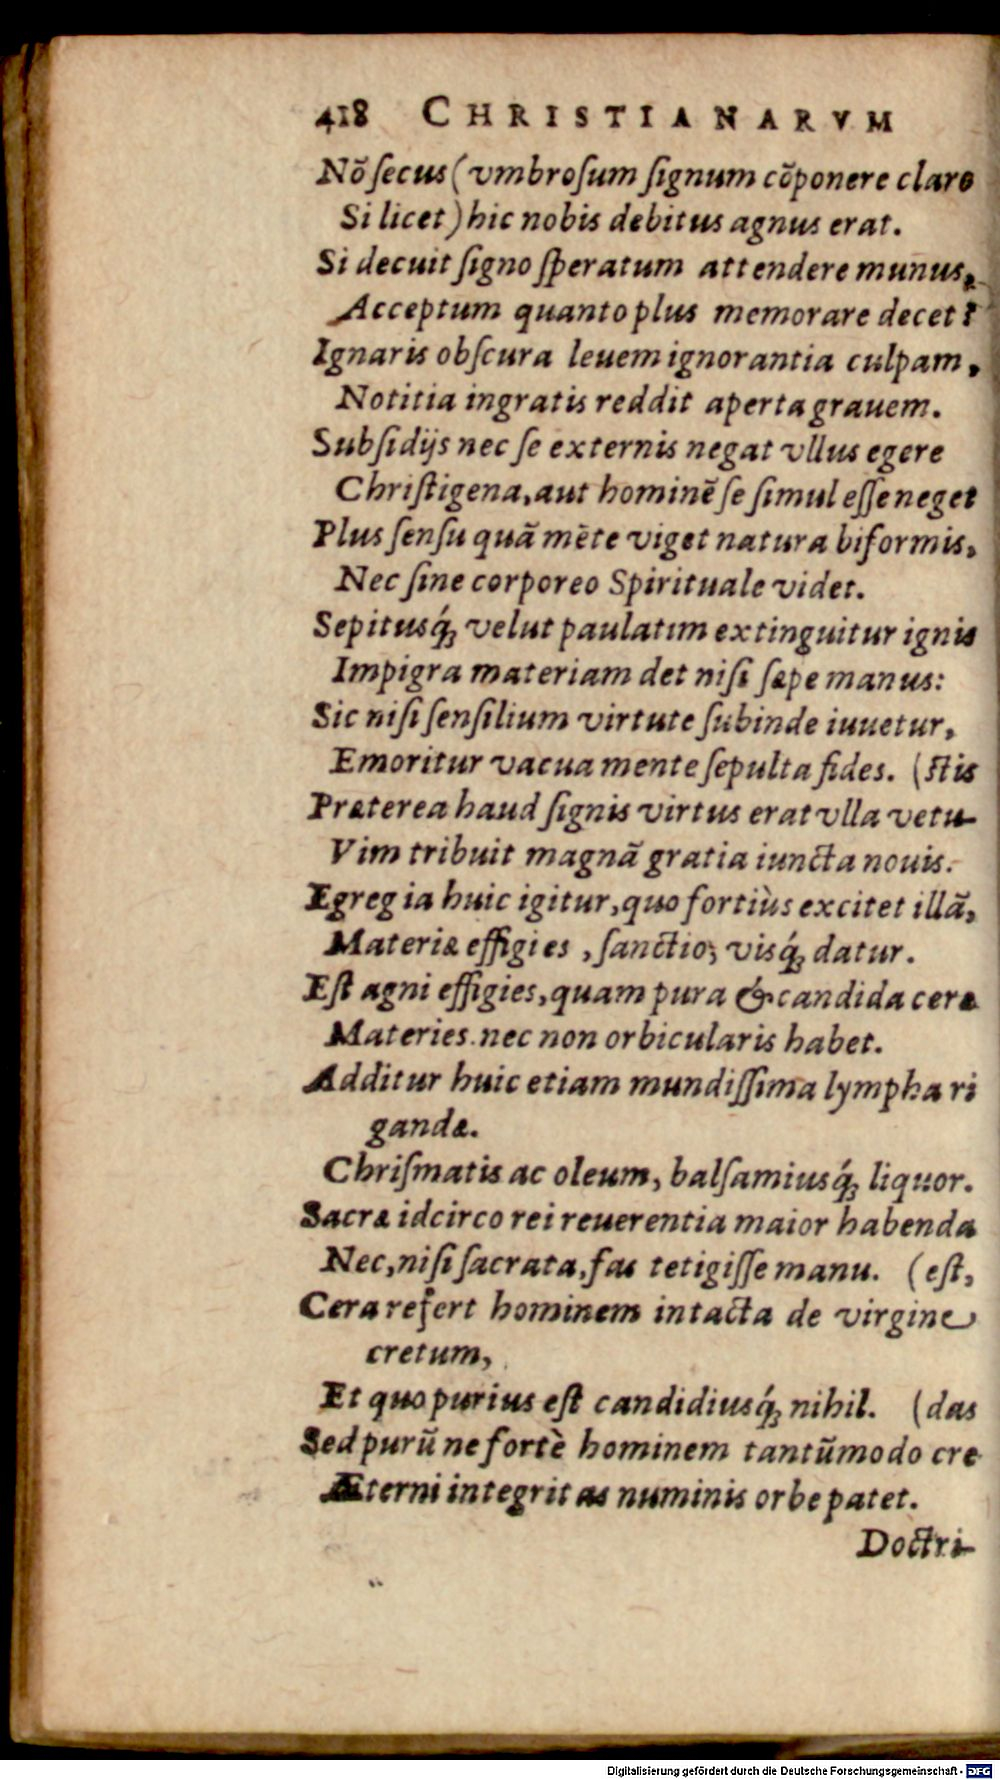 418 CHRISTIANARVM
Nõ ſecus (vmbroſum ſignum cõponere claro
Si licet) hic nobis debitus agnus erat.
Si decuit ſigno ſperatum attendere munus,
Acceptum quanto plus memorare decet?
Ignaris obſcura leuem ignorantia culpam,
Notitia ingratis reddit aperta grauem.
Subſidijs nec ſe externis negat vllus egere
Chriſtigena, aut hominẽ ſe ſimul eſſe neget
Plus ſenſu quã mẽte viget natura biformis,
Nec ſine corporeo Spirituale videt.
Sepitusq́ꝫ velut paulatim extinguitur ignis
Impigra materiam det niſi ſæpe manus:
Sic niſi ſenſilium virtute ſubinde iuuetur,
Emoritur vacua mente ſepulta fides. (ſtis
Præterea haud ſignis virtus erat vlla vetu-
Vim tribuit magnã gratia iuncta nouis.
Egregia huic igitur, quo fortiùs excitet illã,
Materiæ effigies, ſanctio; visq́ꝫ datur.
Eſt agni effigies, quam pura & candida ceræ
Materies nec non orbicularis habet.
Additur huic etiam mundiſſima lympha ri
gandæ.
Chriſmatis ac oleum, balſamiusq́ꝫ liquor.
Sacræ idcirco rei reuerentia maior habenda
Nec, niſi ſacrata, fas tetigiſſe manu. (eſt,
Cera refert hominem intacta de virgine
cretum,
Et quo purius eſt candidiusq́ꝫ nihil. (das
Sed purũ ne fortè hominem tantũmodo cre
Æterni integritas numinis orbe patet.
Doctri-
Digitalisierung gefördert durch die Deutsche Forschungsgemeinschaft - DFG